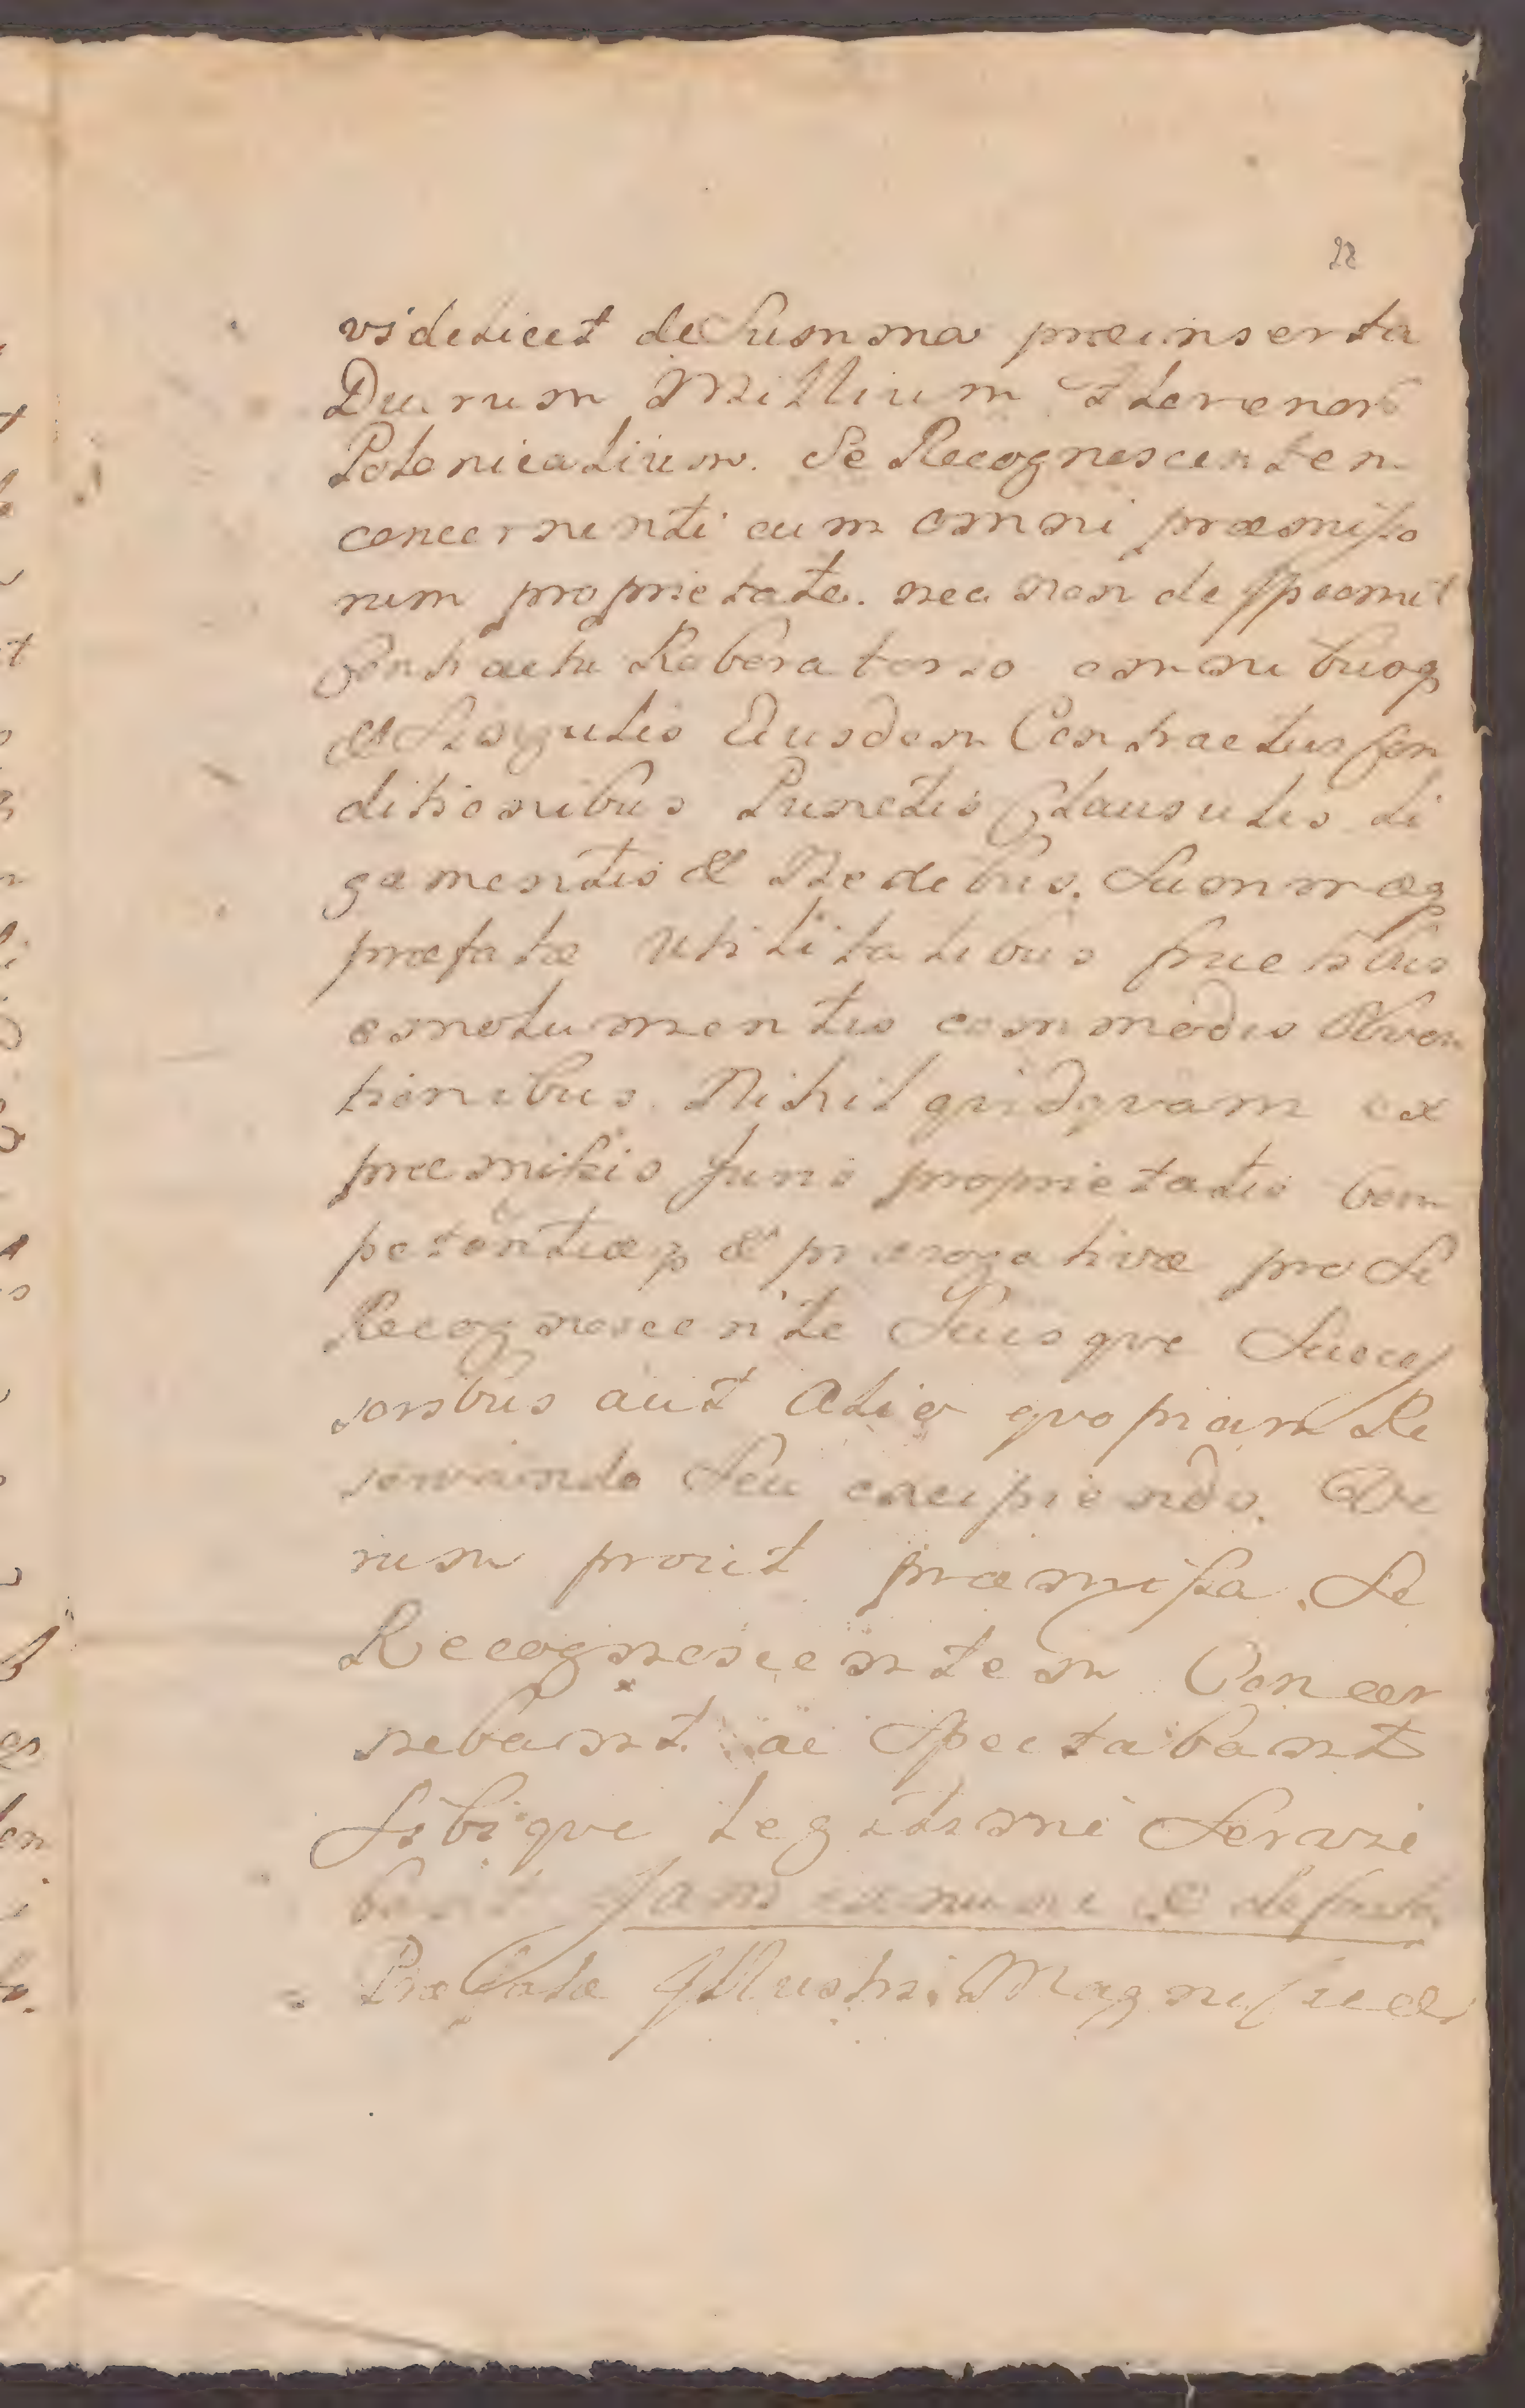 22
videlicet de Summa præinserta
Duarum Millium Florenor
Polonicalium. Se Recognoscentem
concernenti cum omni præmisso
rum proprietate. nec non de
Contractu Roboratorio omnibusq
& Singulis Eiusdem Contractus Con
ditionibus Punctis Clausulis Li
gamentis & Nexibus. Summæq
præfatæ Utilitatibus fructibus
emolumentis commodis Obven
tionibus. Nihil qvidqvam ex
præmissis Juris proprietatis Com
petentiæq & prærogativæ pro Se
Recognoscente Suisqve Succes
soribus aut Alio qvopiam Re
servando Seu excipiendo. Ve
rum prout præmissa Se
Recognoscentem Concer
nebant ac Spectabant
Sibiqve Legitime Servie
bant Jam ex nunc & de facto
Præfatæ Illustri Magnificæ